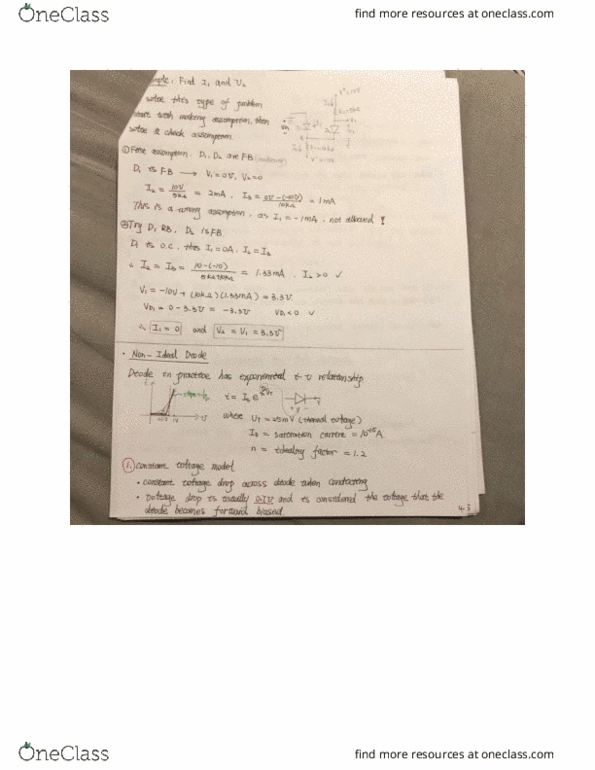 OneClass
find more resources at oneclass.com
Find I₁ and V₂
solve this type of problem
start with making assumption, then
solve & check assumption.
① First assumption. D₁, D₂ are FB
D₁ is FB → V₁ = 0V, V₂ = 0
I₂ = 10V/5kΩ = 2mA, I₃ = 0V-(-10V)/10kΩ = 1mA
This is a wrong assumption, as I₁ = -1mA, not allowed!
② Try D₁ RB, D₂ is FB
D₁ is O.C. thus I₁ = 0A, I₂ = I₃
∴ I₂ = I₃ = 10-(-10)/5kΩ+10kΩ = 1.33mA. I₂ > 0 ✓
V₁ = -10V + (10kΩ)(1.33mA) = 3.3V.
VD₁ = 0 - 3.3V = -3.3V VD₁ < 0 ✓
∴ I₁ = 0 and V₂ = V₁ = 3.3V
• Non-Ideal Diode
Diode in practice has exponential i-v relationship
where UT = 25mV (thermal voltage)
IS = saturation current = 10⁻¹⁵A
n = ideality factor = 1.2
1. constant voltage model
• constant voltage drop across diode when conducting
• voltage drop is usually 0.7V and is considered the voltage that the
diode becomes forward biased.
43
OneClass
find more resources at oneclass.com